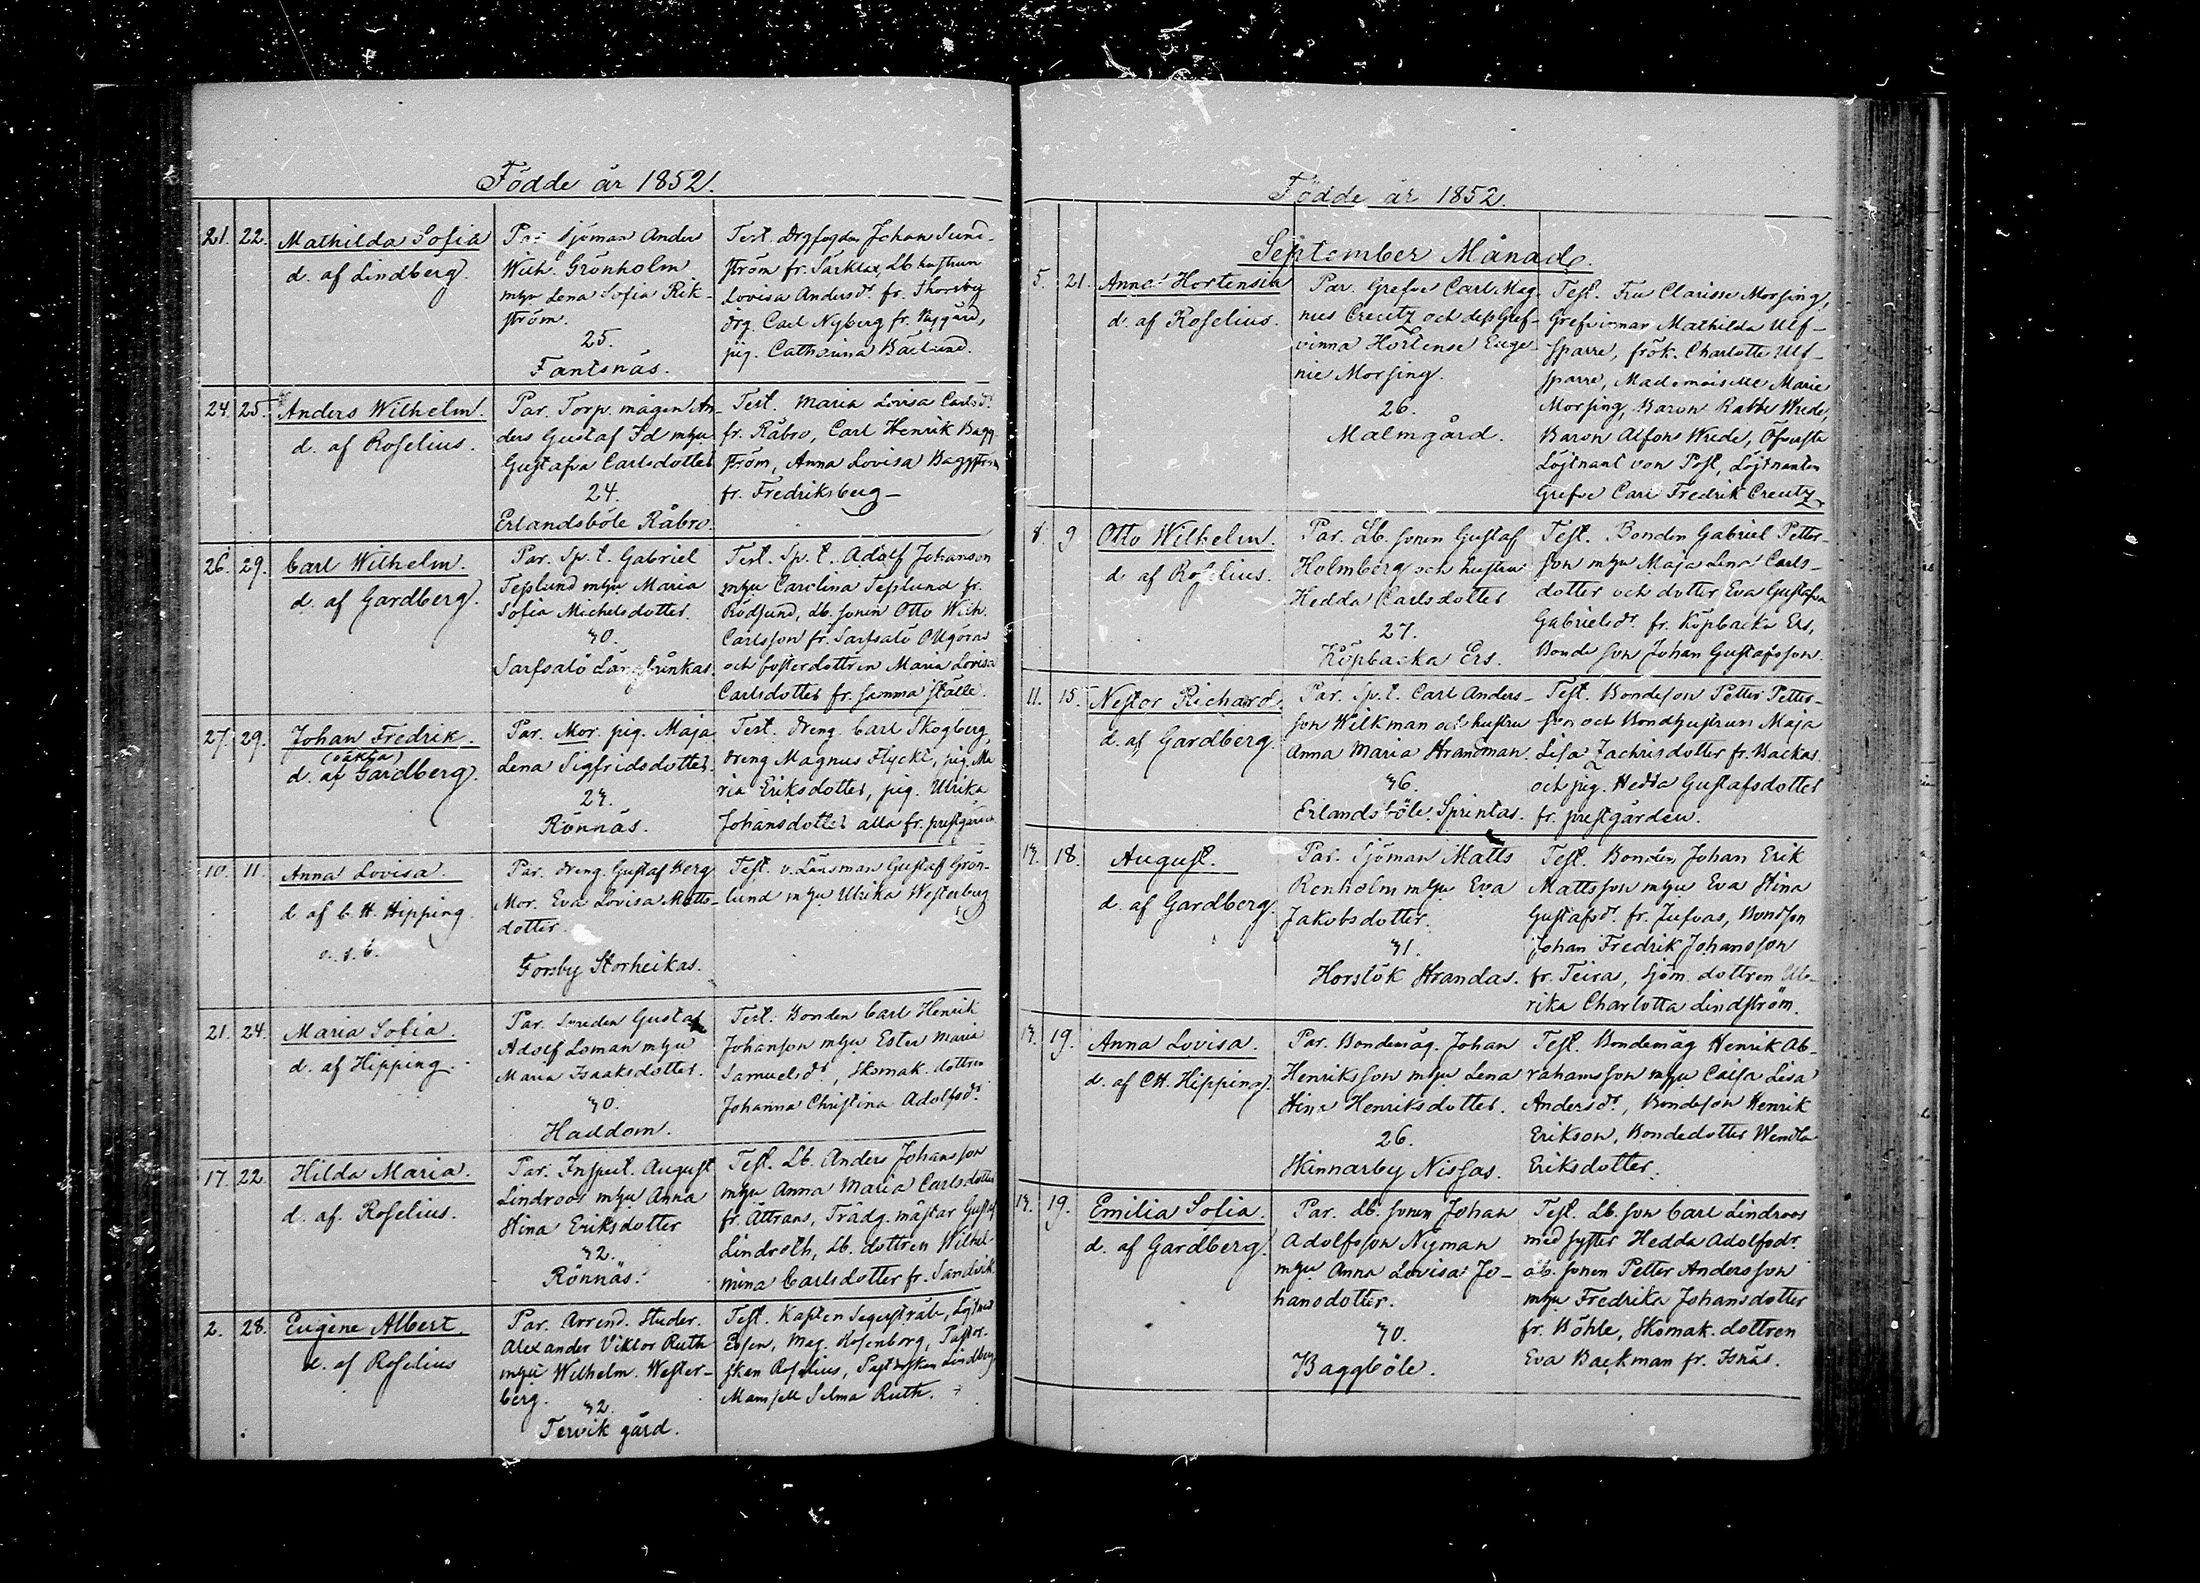 Födde år 1852.
21. 22. Mathilda Sofia
d. af Lindberg.
Par. Sjöman Anders
Wilh. Grönholm
mhu Lena Sofia Rik-
ström.
25.
Fantsnäs.
Test. Johan Sund-
ström fr. Särklax, Lb hustrun
Lovisa Andersdr fr. Thorsby
drg. Carl Nyberg fr.
pig. Catharina Bärlund.
24. 25. Anders Wilhelm.
d. af Roselius.
Par. Torp. mågen An-
ders Gustaf Id mhu
Gustafva Carlsdotter
24.
Erlandsböle Råbro.
Test. Maria Lovisa Carlsdr
fr. Råbro, Carl Henrik Bagg-
ström, Anna Lovisa Baggström
fr. Fredriksberg-
26. 29. Carl Wilhelm.
d. af Gardberg.
Par. Sp. t. Gabriel
Tesslund mhu Maria
Sofia Michelsdotter.
30.
Sarfsalö
Test. Sp. t. Adolf Johanson
mhu Carolina Tesslund fr.
Rödsund, Lb. sonen Otto Wilh.
Carlsson fr. Sarfsalö Ollgöras
och fosterdottren Maria Lovisa
Carlsdotter fr. samma ställe.
27. 29. Johan Fredrik.
(oäkta)
d. af Gardberg.
Par. Mor. pig. Maja
Lena Sigfridsdotter.
Rönnäs.
Test. dreng Carl Skogberg,
dreng Magnus Flyckt, pig. Ma
ria Eriksdotter, pig. Ulrika
Johansdotter alla fr. prestgården
10. 11. Anna Lovisa.
d. af C. H. Hipping
Par. dreng. Gustaf Berg
Mor. Eva Lovisa Matts-
dotter.
Forsby Storheikas.
Test. v. Länsman Gustaf Grön-
lund mhu Ulrika Westerberg
21. 24. Maria Sofia.
d. af Hipping.
Par. Smeden Gustaf
Adolf Loman mhu
Maria Isaaksdotter.
30.
Haddom.
Test. Bonden Carl Henrik
Johanson mhu Ester Maria
Samuelsdr, Skomak. dottren
Johanna Christina Adolfsdr
17. 22. Hilda Maria.
d. af Roselius.
Par. Inspect. August
Lindroos mhu Anna
Stina Eriksdotter
32.
Rönnäs.
Test. Lb. Anders Johansson
mhu Anna Maria Carlsdotter
fr. Attrans, Trädg. mästar Gustaf
Lindroth, Lb. dottren Wilhel-
mina Carlsdotter fr. Sandvik
2. 28. Eugène Albert.
d. af Roselius
Par. Arrend. Studer.
Alexander Viktor Ruth
mhu Wilhelm. Wester-
berg.
32.
Tervik gård.
Test. Kapten Segerstråle, Löjtnant
Essen, Mag. Rosenborg, Pastor-
skan Roselius, Lindberg
Mamsell Selma Ruth.
Födde år 1852.
September Månad.
5. 21. Anna Hortensia
d. af Roselius.
Par. Grefve Carl Mag-
nus Creutz och dess Gref-
vinna Hortense Euge-
nie Morsing.
26.
Malmgård.
Test. Fru Clarisse Morsing,
Grefvinnan Mathilda Ulf-
sparre, frök. Charlotte Ulf-
sparre, Mademoiselle Marie
Morsing, Baron Rabbe Wrede,
Baron Alfons Wrede, Öfverste
Löjtnant von Post, Löjtnanten
Grefve Carl Fredrik Creutz
8. 9. Otto Wilhelm.
d. af Roselius.
Par. Lb. sonen Gustaf
Holmberg och hustru
Hedda Carlsdotter
27.
Köpbacka Ers.
Test. Bonden Gabriel Petter-
son mhu Maja Lena Carls-
dotter och dotter Eva Gustafva
Gabrielsdr fr. Köpbacka Ers,
Bonde son Johan Gustafsson.
11. 15. Nestor Richard.
d. af Gardberg.
Par. Sp. t. Carl Anders-
son Wilkman och hustru
Anna Maria Strandman.
36.
Erlandsböle Sprintas.
Test. Bondeson Petter Petter-
son och Bondhustrun Maja
Lisa Zachrisdotter fr. Backas
och pig. Hedda Gustafsdotter
fr. prestgården.
13. 18. August.
d. af Gardberg.
Par. Sjöman Matts
Renholm mhu Eva
Jakobsdotter.
31.
Horslök Strandas.
Test. Bonden Johan Erik
Mattsson mhu Eva Stina
Gustafsdr. fr. Jufvas, Bondson
Johan Fredrik Johansson
fr. Teira, Sjöm. dottren Ul-
rika Charlotta Lindström.
13. 19. Anna Lovisa.
d. af CH. Hipping.
Par. Bondemåg. Johan
Henriksson mhu Lena
Stina Henriksdotter.
26.
Skinnarby Nissas.
Test. Bondemåg Henrik Ab-
rahamsson mhu Caisa Lisa
Andersdr, Bondeson Henrik
Erikson, Bondedotter Wendla
Eriksdotter.
13. 19. Emilia Sofia.
d. af Gardberg.
Par. Lb. sonen Johan
Adolfsson Nyman
mhu Anna Lovisa Jo-
hansdotter.
30.
Baggböle.
Test. Lb. son Carl Lindroos
med syster Hedda Adolfsdr
Lb. sonen Petter Andersson
mhu Fredrika Johansdotter
fr. Böhle, Skomak. dottren
Eva Backman fr. Isnäs.